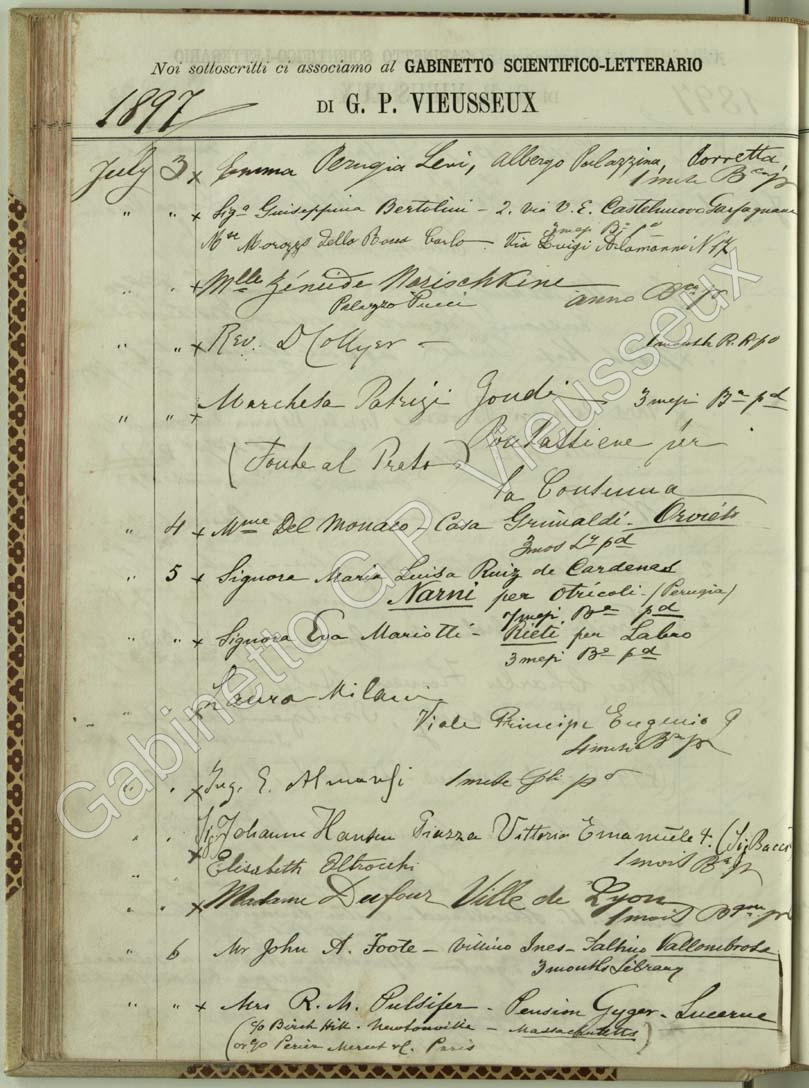 Noi sottoscritti ci associamo al GABINETTO SCIENTIFICO-LETTERARIO
1897 DI G. P. VIEUSSEUX
July 3 x Emma Perugia Levi, Albergo Palazzina, Torretta,
1 mese
" " x Sigª Guiseppina Bertolini – 2. via V. E. Castelnuovo Garfagnana
3 mesi Bª pd
Mse Morozzo della Rocca Carlo – Via Luigi Alamanni N 17
" " x Mlle Zénéide Narischkine anno
Palazzo Pucci
" " x Rev. D Collyer – 1 month R. R pd
" " x Marchesa Patrizi Gondi 3 mesi Bª pd
(Fonte al Prato) Pontassieve per
la Consuma
" 4 x Mme Del Monaco – Casa Grimaldi – Orvieto
3 mos Ly pd
" 5 x Signora Maria Luisa Ruiz de Cardenas
Narni per Otricoli – (Perugia)
mesi Bª pd
" " x Signora Eva Mariotti – Rieti per Labro
3 mesi Bª pd
" " x Laura Milani
Viale Principe Eugenio 9
" " x Ing. E. Almansi 1 mese
" " x Johanne Hansen Piazza Vittorio Emanuele 4. (Bacci)
Elisabeth Oltrocchi 1 mois
" " x Madame Dufour Ville de Lyon
1 mois
" 6 Mr John A. Foote – Villino Ines – Saltino Vallombrosa
3 months Library
" " x Mrs R. M. Pulsifer – Pension Gyger – Lucerne
(c/o Birch Hill – Newtonville – Massachusetts)
or c/o Perier Mercet & C. Paris
Gabinetto G.P. Vieusseux